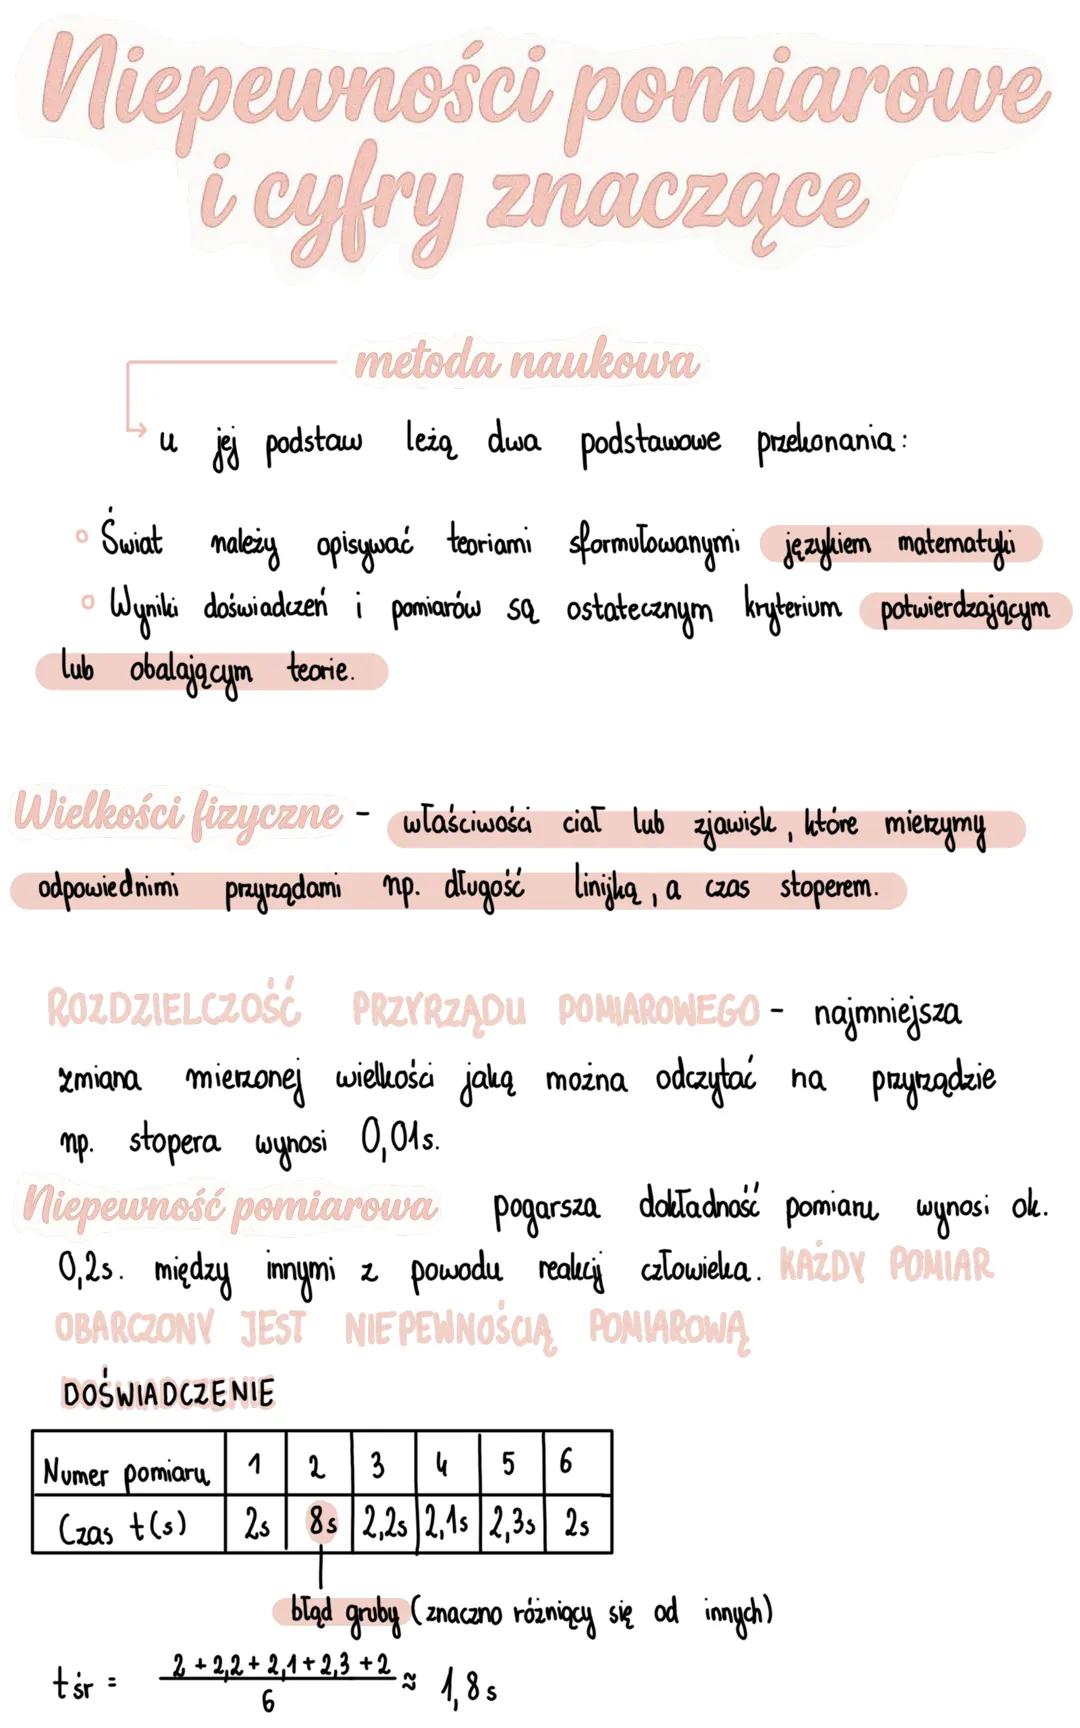 Niepewności pomiarowe
i cyfry znaczące
metoda naukowa
u jej podstaw leżą dwa podstawowe przekonania:
Świat należy opisywać teoriami sformułowanymi językiem matematyki
Wyniki doświadczeń i pomiarów są ostatecznym kryterium potwierdzającym
lub obalającym teorie.
Wielkości fizyczne - właściwości ciał lub zjawisk, które mierzymy
odpowiednimi przyrządami np. długość linijką, a czas stoperem.
ROZDZIELCZOŚĆ PRZYRZĄDU POMIAROWEGO - najmniejsza
zmiana mierzonej wielkości jaką można odczytać na przyrządzie
np. stopera wynosi 0,01s.
Niepewność pomiarowa pogarsza dokładność pomiaru wynosi ok.
0,2s. między innymi z powodu reakcji człowieka. KAŻDY POMIAR
OBARCZONY JEST NIEPEWNOŚCIĄ POMIAROWĄ
DOŚWIADCZENIE
Numer pomiaru 1 2 3 4 5 6
Czas t(s) 2s 8s 2,2s 2,1s 2,3s 2s
błąd gruby (znaczno różniący się od innych)
tśr = 2 + 2,2 + 2,1 + 2,3 + 2 / 6 ≈ 1,8 s